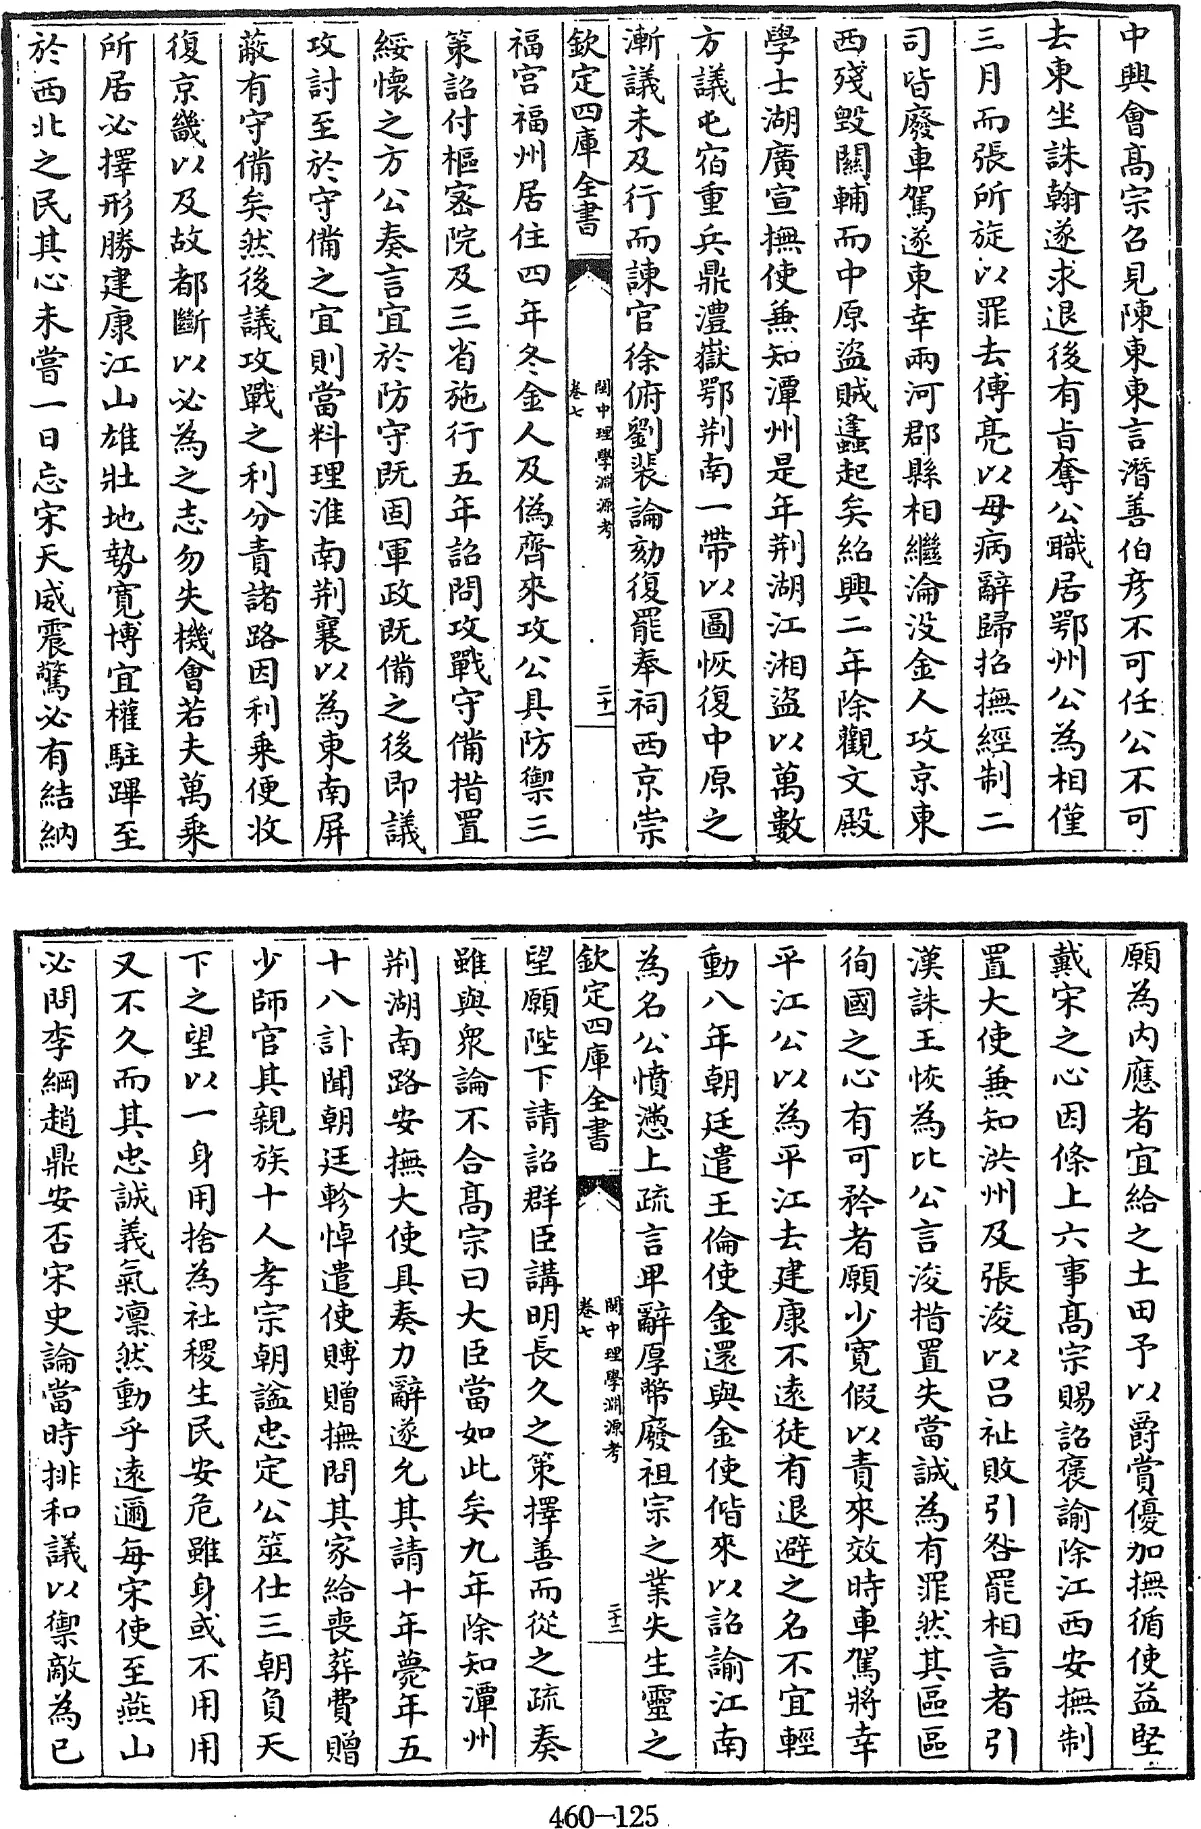 中興會髙宗召見陳東東言潛善伯彦不可任公不可
去東坐誅翰遂求退後有㫖奪公職居鄂州公為相僅
三月而張所旋以罪去傅亮以母病辭歸招撫經制二
司皆廢車駕遂東幸兩河郡縣相繼淪没金人攻京東
西殘毀關輔而中原盜賊蠭起矣紹興二年除觀文殿
學士湖廣宣撫使兼知潭州是年荆湖江湘盜以萬數
方議屯宿重兵鼎澧嶽鄂荆南一帶以圖恢復中原之
漸議未及行而諫官徐俯劉裴論劾復罷奉祠西京崇
欽定四庫全書
閩中理學淵源考
卷七
二十一
福宫福州居住四年冬金人及偽齊來攻公具防禦三
策詔付樞宻院及三省施行五年詔問攻戰守備措置
綏懷之方公奏言宜於防守既固軍政既備之後即議
攻討至於守備之宜則當料理淮南荆襄以為東南屏
蔽有守備矣然後議攻戰之利分責諸路因利乗便收
復京畿以及故都斷以必為之志勿失機會若夫萬乗
所居必擇形勝建康江山雄壯地勢寛博宜權駐蹕至
於西北之民其心未嘗一日忘宋天威震驚必有結納
願為内應者宜給之土田予以爵賞優加撫循使益堅
戴宋之心因條上六事髙宗賜詔褒諭除江西安撫制
置大使兼知洪州及張浚以吕祉敗引咎罷相言者引
漢誅王恢為比公言浚措置失當誠為有罪然其區區
徇國之心有可矜者願少寛假以責來效時車駕將幸
平江公以為平江去建康不逺徒有退避之名不宜輕
動八年朝廷遣王倫使金還與金使偕來以詔諭江南
為名公憤懣上疏言卑辭厚幣廢祖宗之業失生靈之
欽定四庫全書
閩中理學淵源考
卷七
二十二
望願陛下請詔群臣講明長久之策擇善而從之疏奏
雖與衆論不合髙宗曰大臣當如此矣九年除知潭州
荆湖南路安撫大使具奏力辭遂允其請十年薨年五
十八訃聞朝廷軫悼遣使賻贈撫問其家給喪葬費贈
少師官其親族十人孝宗朝諡忠定公筮仕三朝負天
下之望以一身用捨為社稷生民安危雖身或不用用
又不久而其忠誠義氣凛然動乎逺邇每宋使至燕山
必問李綱趙鼎安否宋史論當時排和議以禦敵為已
460-125